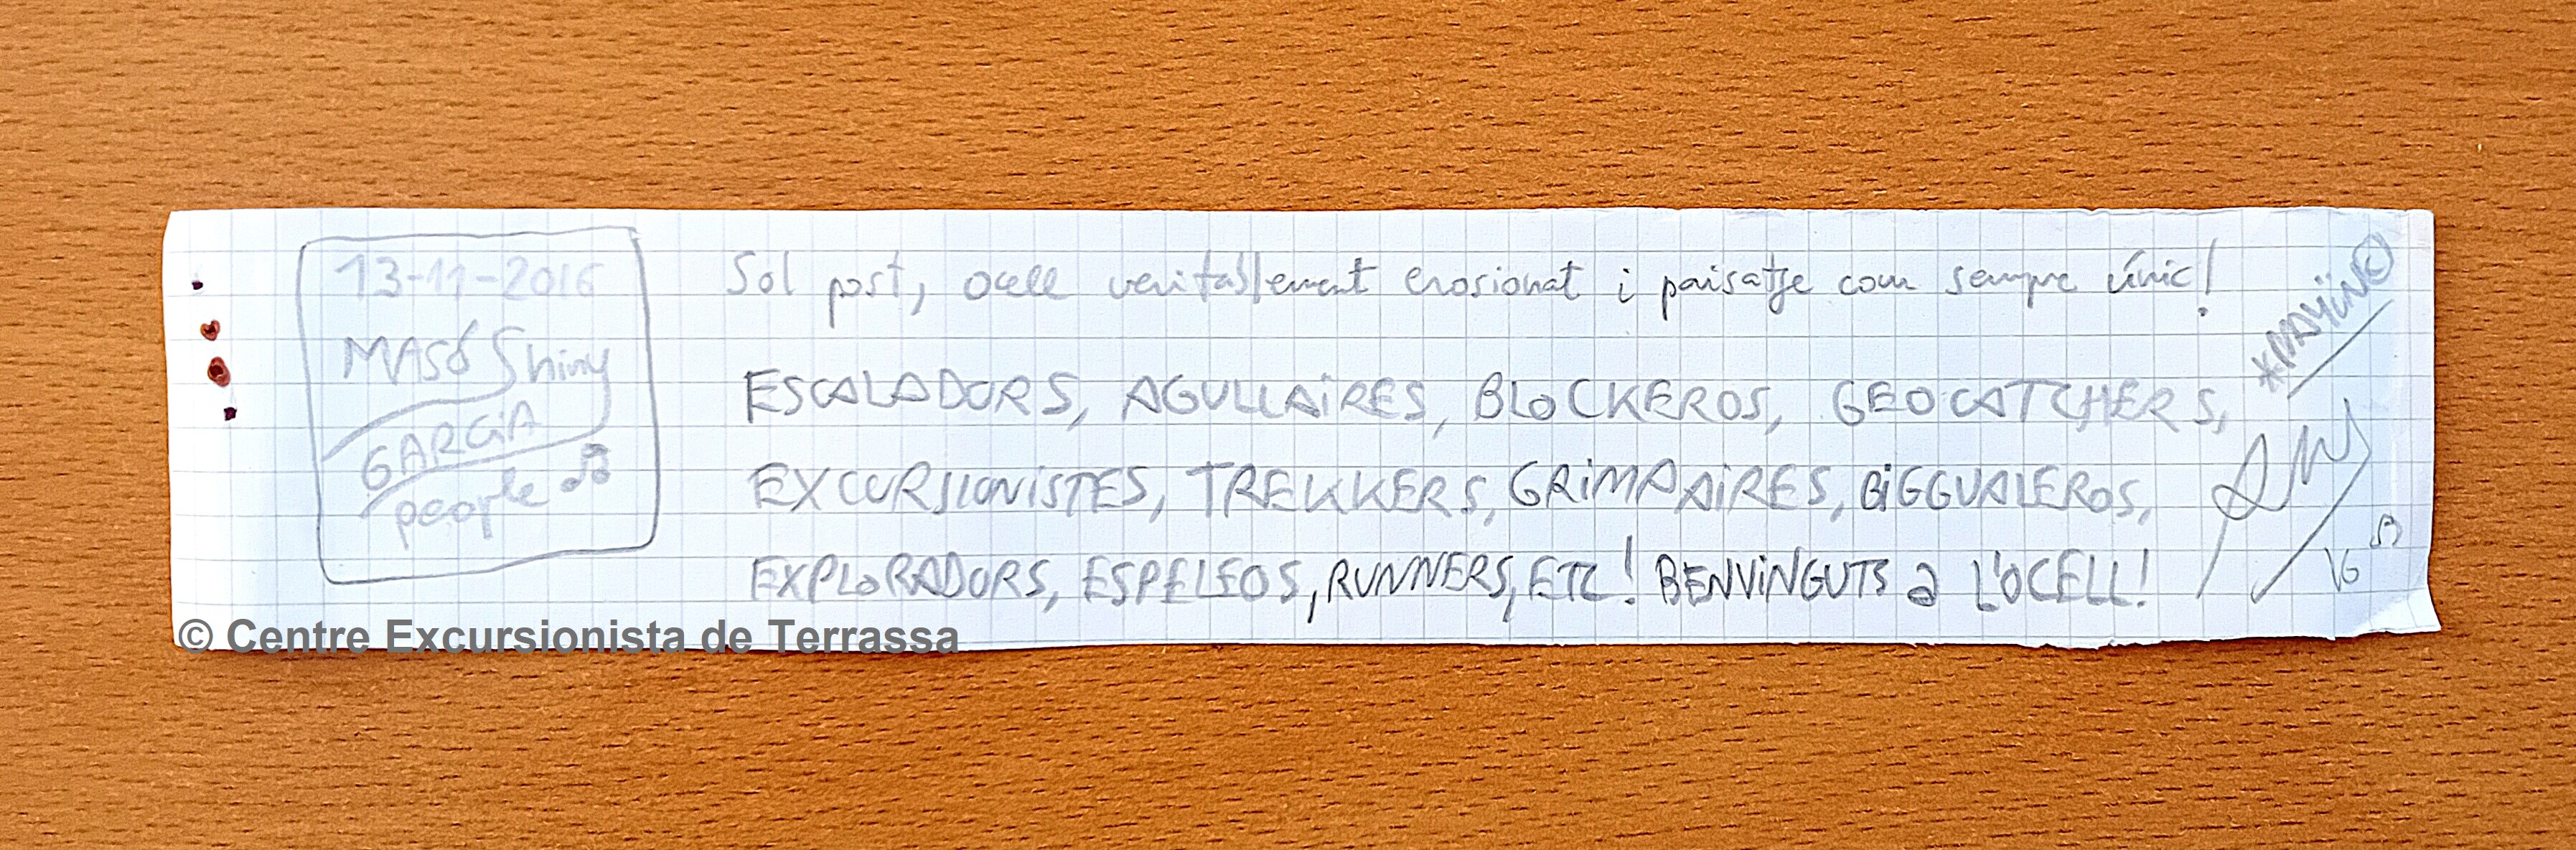 13-11-2016
MASÓ Shiny
GARCIA
people
Sol post, ocell veritablement erosionat i paisatje com sempre únic!
ESCALADORS, AGULLAIRES, BLOCKEROS, GEOCATCHERS,
EXCURSIONISTES, TREKKERS, GRIMPAIRES, BIGGUALEROS,
EXPLORADORS, ESPELEOS, RUNNERS, ETC! BENVINGUTS a L'OCELL!
16
© Centre Excursionista de Terrassa